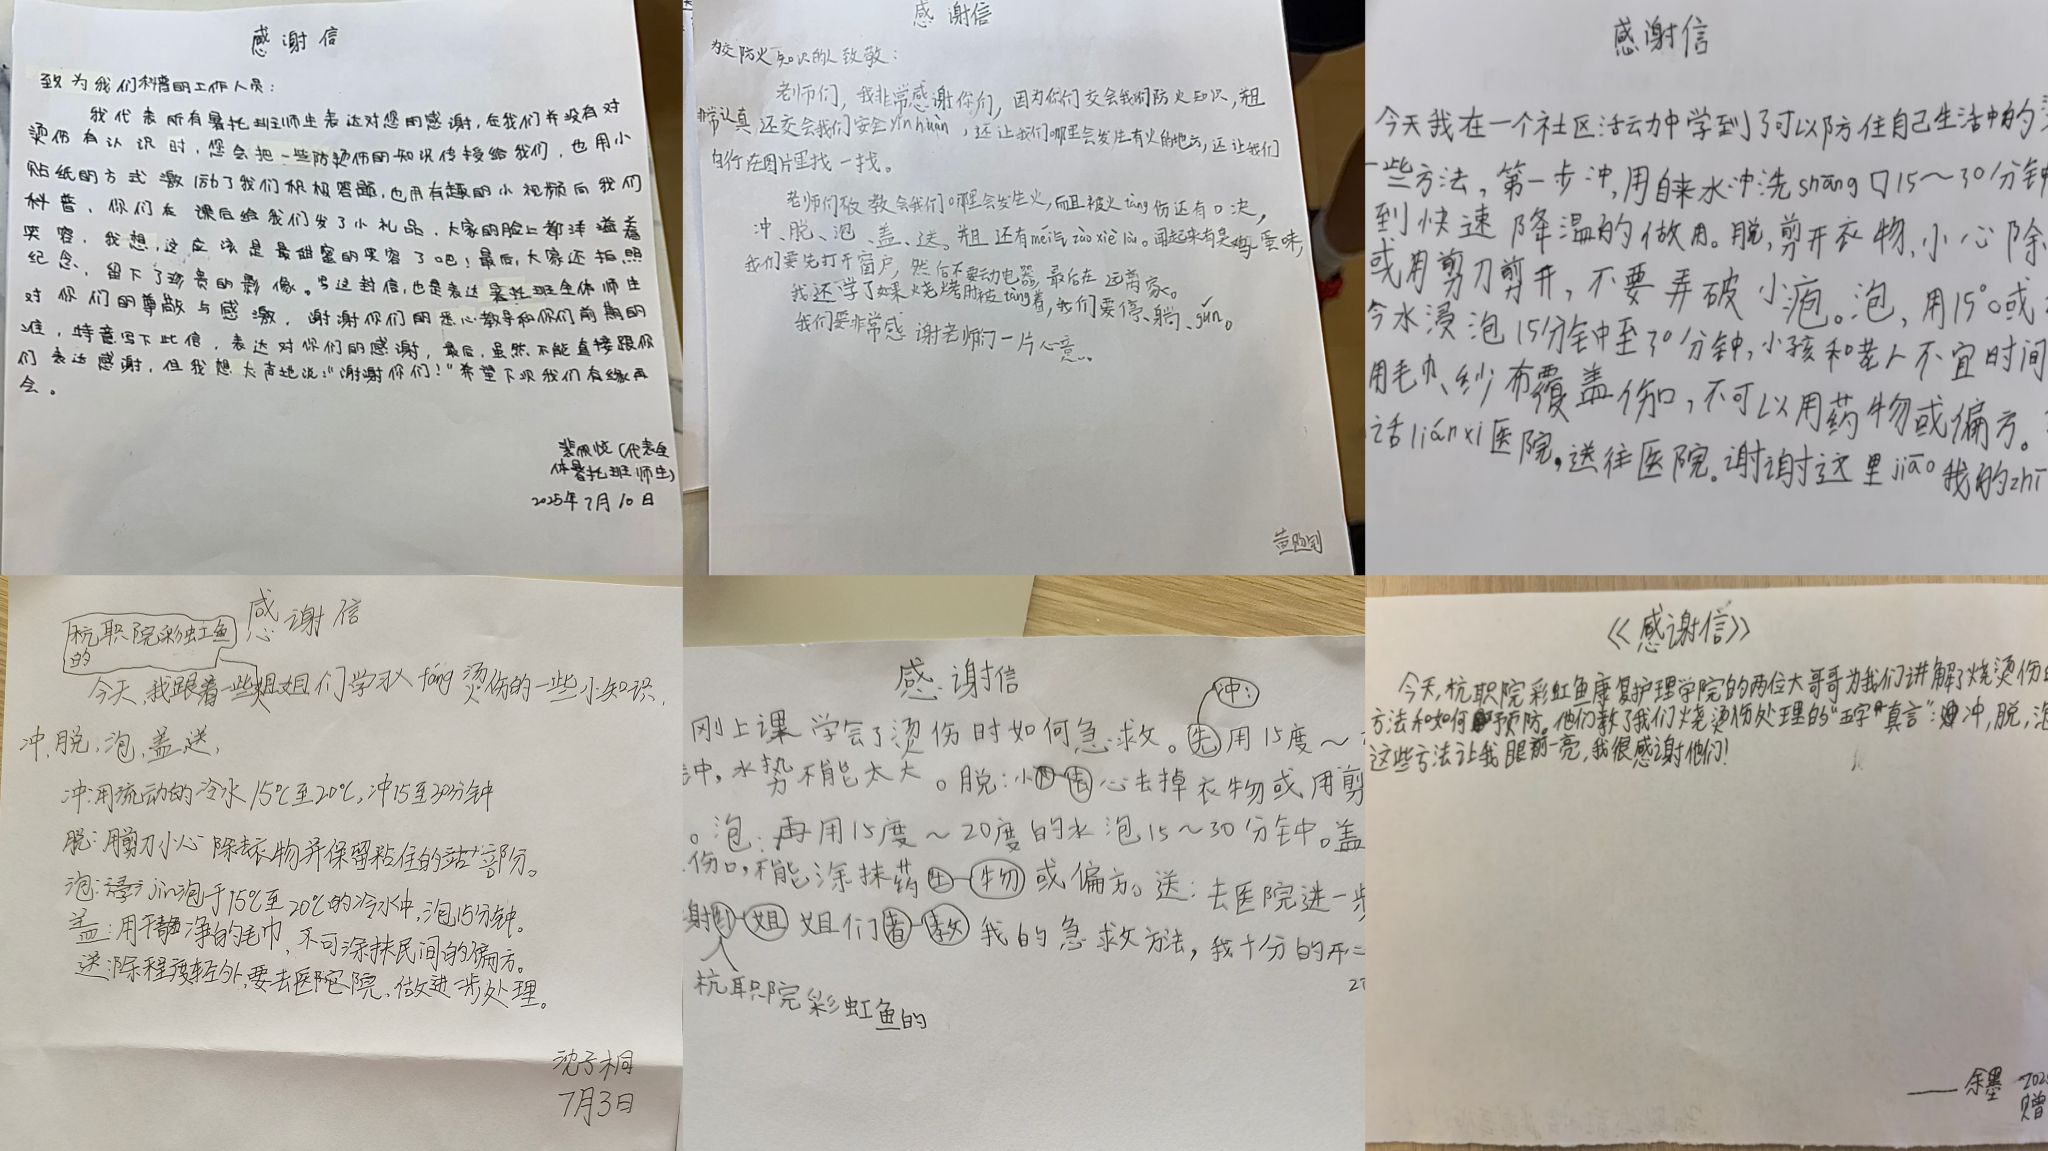 感谢信
致为我们科普的工作人员：
我代表所有暑托班师生表达对您的感谢，在我们并没有对
烫伤有认识时，您会把一些防烫伤的知识传授给我们，也用小
贴纸的方式激励了我们积极答题，也用有趣的小视频向我们
科普，你们在课后给我们发了小礼品，大家的脸上都洋溢着
笑容，我想，这应该是最甜蜜的笑容了吧！最后，大家还拍照
纪念，留下了珍贵的影像。写这封信，也是表达暑托班全体师生
对你们的尊敬与感激，谢谢你们的悉心教导和你们前期的
准，特意写下此信，表达对你们的感谢，最后，虽然不能直接跟你
们表达感谢，但我想大声地说："谢谢你们！"希望下次我们有缘再
会。
（代表全
体暑托班师生）
2025年7月10日
感谢信
为交防火知识的人致敬：
老师们，我非常感谢你们，因为你们交会我们防火知识，并且
非常认真还交会我们安全yǐn huàn，还让我们哪里会发生有火的地方，还让我们
自行在图片里找一找。
老师们不仅教会我们哪里会发生火，而且被火tàng伤还有口决，
冲、脱、泡、盖、送。并且还有méi气zào xiè lòu。闻起来有臭鸡蛋味，
我们要先打开窗户，然后不要动电器，最后在远离家。
我还学了如果烧烤时被tàng着，我们要停、躺、gǔn。
我们要非常感谢老师们一片心意。
感谢信
今天我在一个社区活动中学到了可以防住自己生活中的
一些方法，第一步冲，用自来水冲洗shāng口15～30分钟
到快速降温的做用。脱，剪开衣物，小心除
或用剪刀剪开，不要弄破小疱。泡，用15°或
今水浸泡15分钟至30分钟，小孩和老人不宜时间
用毛巾、纱布覆盖伤口，不可以用药物或偏方。
话lián xi医院，送往医院。谢谢这里jiāo我的zhī
感谢信
杭职院彩虹鱼
的
今天，我跟着一些姐姐们学习 fáng烫伤的一些小知识，
冲，脱，泡，盖，送，
冲：用流动的冷水15℃至20℃，冲15至30分钟
脱：用剪刀小心除去衣物并保留粘住的部分。
泡：浸jìn泡于15℃至20℃的冷水中，泡15分钟。
盖：用干净的毛巾，不可涂抹民间的偏方。
送：除程度轻外，要去医院，做进一步处理。
沈子桐
7月3日
感谢信
冲：
刚上课学会了烫伤时如何急救。先用15度～
钟，水势不能太大。脱：小心去掉衣物或用剪
。泡：再用15度～20度的水泡15～30分钟。盖
伤口，不能涂抹药物或偏方。送：去医院进一步
谢姐姐们教我的急救方法，我十分的开
杭职院彩虹鱼的
《感谢信》
今天，杭职院彩虹鱼康复护理学院的两位大哥哥为我们讲解了烧烫伤的
方法和如何预防。他们教了我们烧烫伤处理的"五字真言"：冲，脱，泡
这些方法让我眼前一亮，我很感谢他们！
——余墨 202
赠